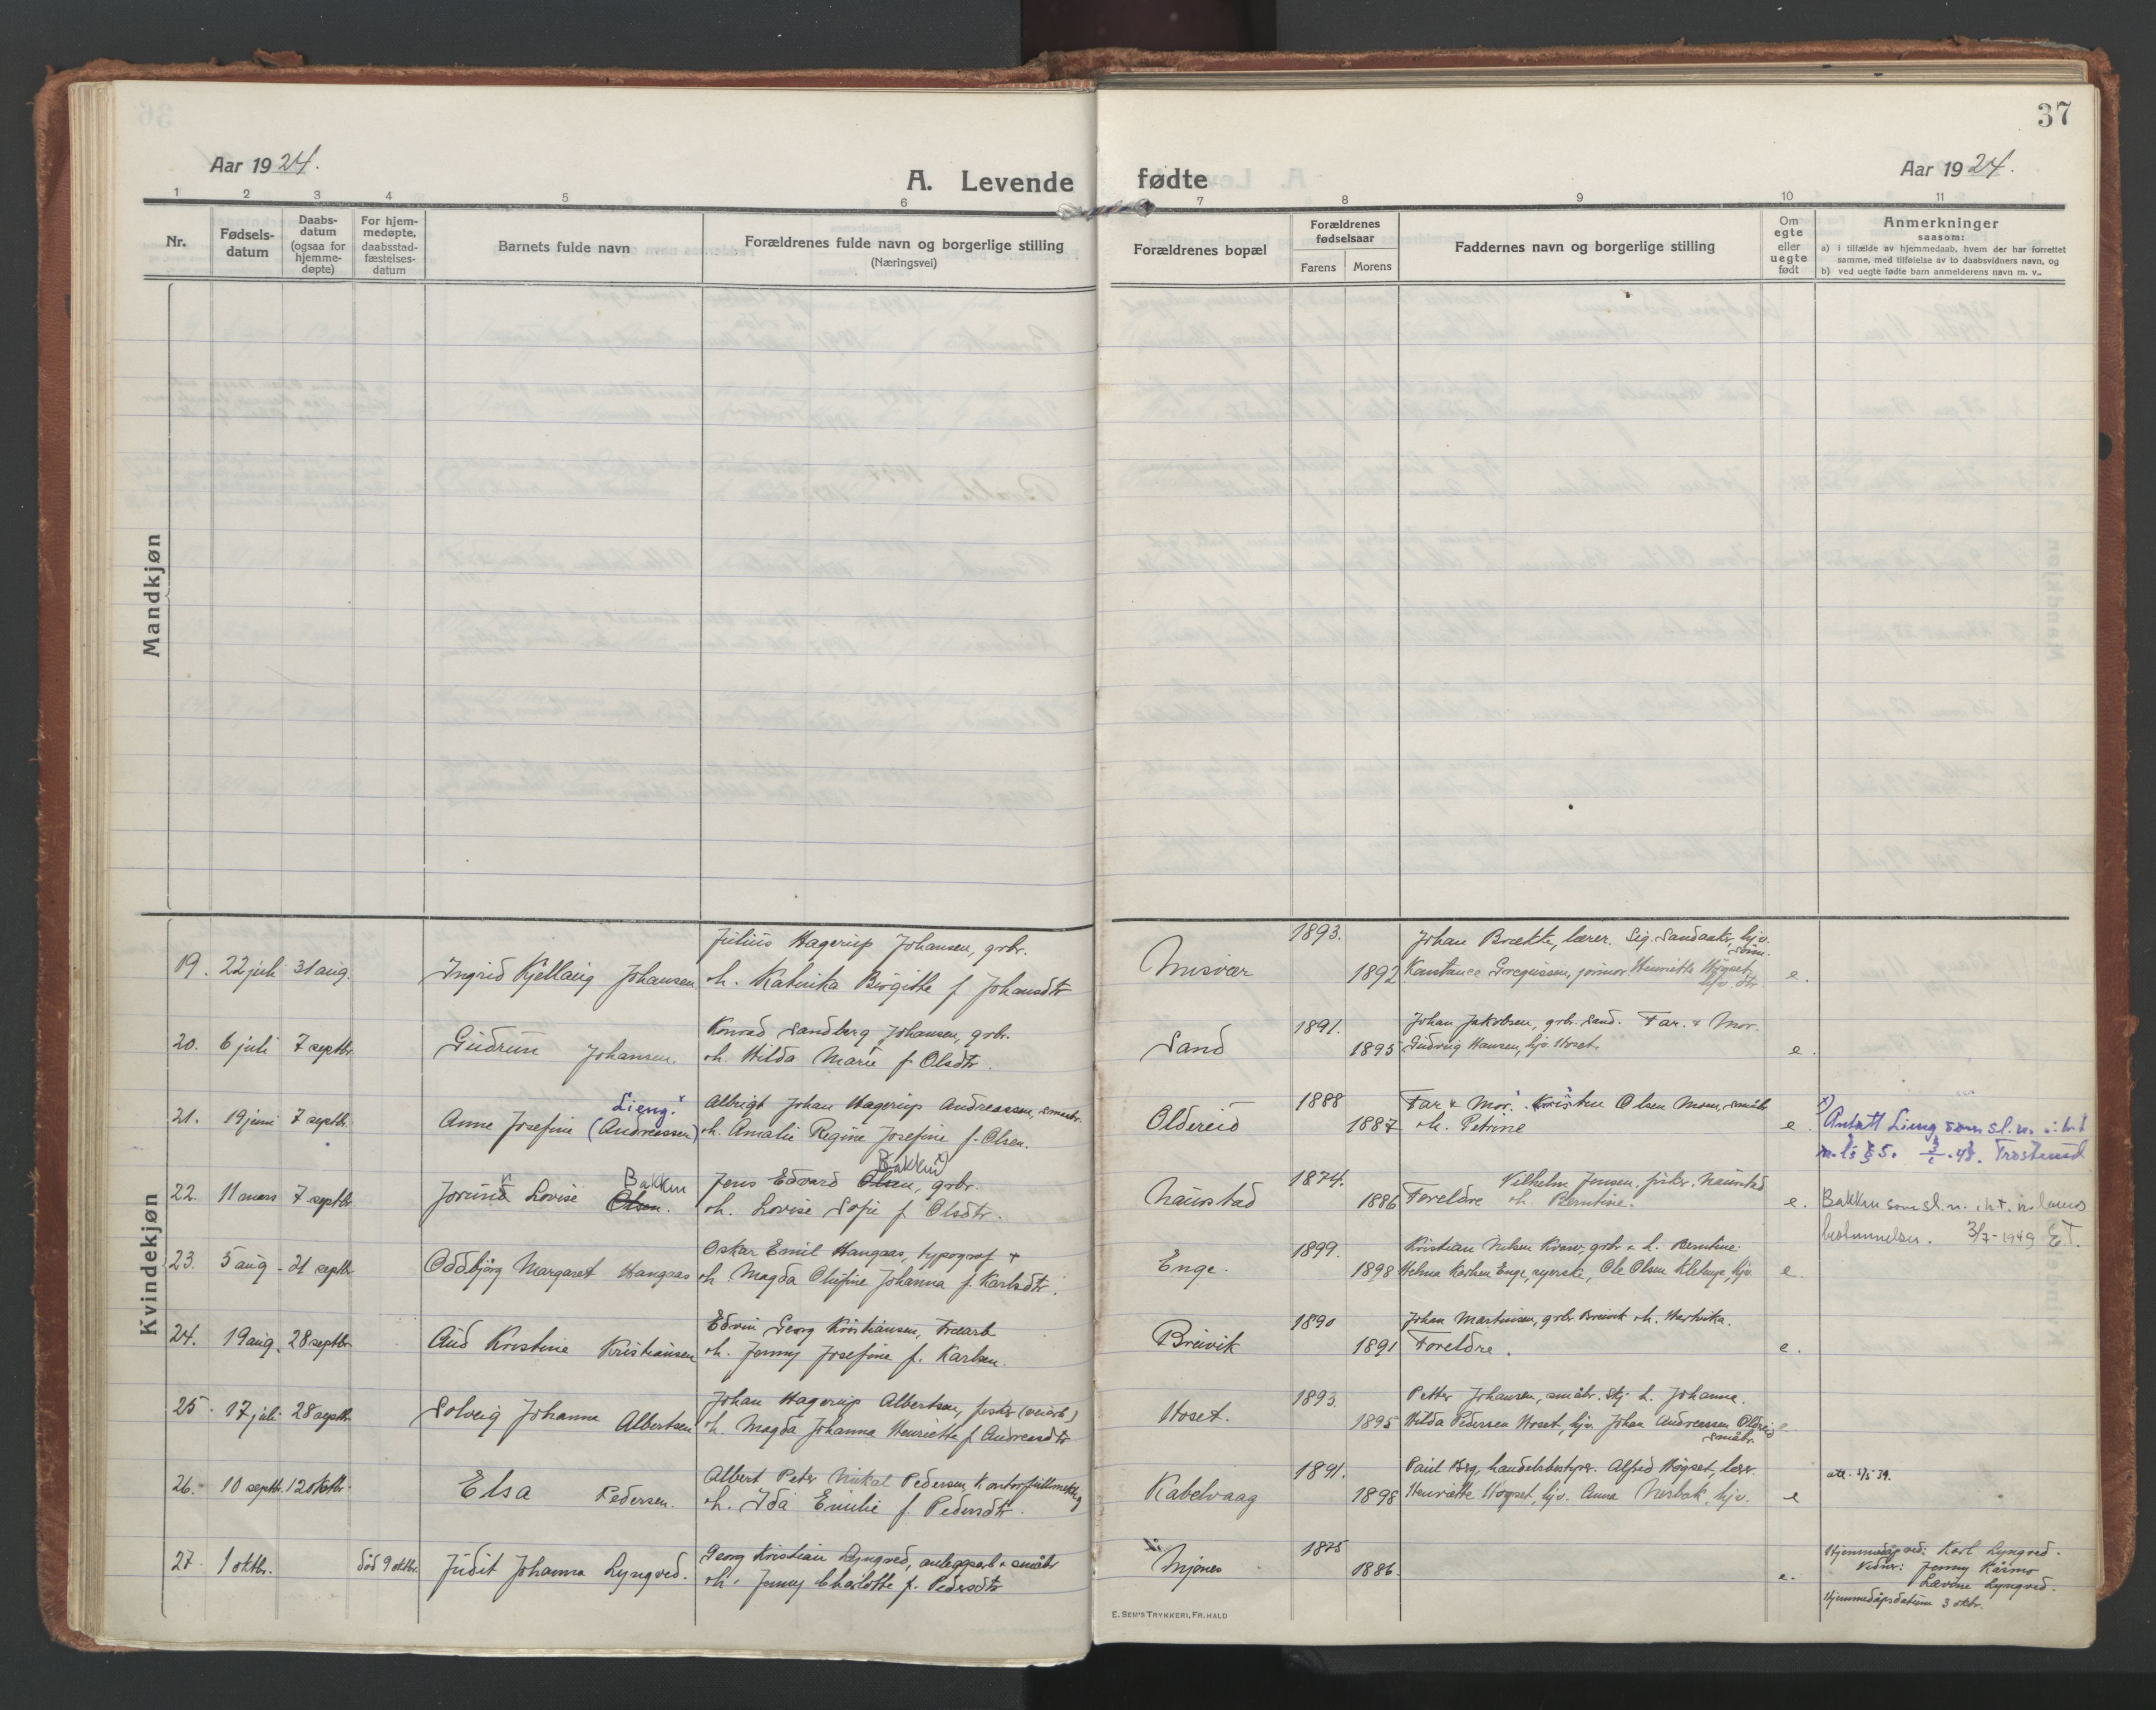 37
Aar 1924.
A. Levende fødte
Aar 1924.
1 2 3 4 5 6 7 8 9 10 11
Nr.
Fødsels-
datum
Daabs-
datum
(ogsaa for
hjemme-
døpte)
For hjem-
medøpte,
daabsstad-
fæstelses-
datum
Barnets fulde navn
Forældrenes fulde navn og borgerlige stilling
(Næringsvei)
Forældrenes bopæl
Forældrenes
fødselsaar
Farens Morens
Faddernes navn og borgerlige stilling
Om
egte
eller
uegte
født
Anmerkninger
saasom:
a) i tilfælde av hjemmedaab, hvem der har forrettet
samme, med tilføielse av to daabsvidners navn, og
b) ved uegte fødte barn anmelderens navn m. v..
Mandkjøn
Kvindekjøn
Julius Hagerup Johansen, grbr. 1893. Johan Brække, lærer.
19. 22 juli 31 aug. Ingrid Kjellaug Johansen h. Katinka Birgitte f Johansdtr Misvær 1892 e.
Konrad Sandberg Johansen, grbr. 1891. Johan Jakobsen, grbr. Sand. Far & Mor.
20. 6 juli 7 septbr. Gudrun Johansen. h. Hilda Marie f. Olsdtr. Sand 1895 Hansen, hjv. Hoset. e.
Lieng. x Albrigt Johan Hagerup Andreassen, småbr. 1888 Far & Mor. Kristen Olsen Moen, småbr x)
21. 19 juni 7 septbr. Anne Josefine (Andreassen) h. Amalie Regine Josefine f. Olsen. Oldereid 1887 h. Petrine e. Antatt Lieng som sl.n. i h.t
Trostmud
Bakken Jens Edvard Olsen, grbr. Bakken 1874. Vilhelm Jensen, fisker, Naustad
22. 11 mars 7 septbr. Jorunn Lovise Olsen. h. Lovise Sofie f Olsdtr. Naustad 1886 Foreldre h. Berntine. e. Bakken som sl.n. i h.t. n. lovens
bestemmelser. 3/7-1949 E.T.
Oskar Emil Hangaas, typograf + 1899. Kristian Nilsen Kvæv, grbr & h. Berntine.
23. 5 aug - 21 septbr. Oddbjørg Margaret Hangaas h. Magda Olufine Johanna f. Karlsdtr. Enge. 1898 Helma Karlsen Enge, syerske, Ole Olsen hjv. e.
Edvin Georg Kristiansen, 1890 Johan Martinsen, grbr Breivik h. Hertvika.
24. 19 aug. 28 septbr. Aud Kristine Kristiansen h. Jenny Josefine f. Karlsen. Breivik 1891 Foreldre. e.
Johan Hagerup Albertsen, fisker (veiarb) 1893. Petter Johansen, småbr. h. Johanna.
25. 17 juli 28 septbr. Solveig Johanne Albertsen h. Magda Johanna Henriette f. Andreasdtr Hoset. 1895 Hilda Pedersen Hoset, hjv. Johan Andreassen Oldereid
småbr.
Albert Peter Mikal Pedersen, Kontorfullmektig 1891. Paul Berg, handelsbestyrer. Alfred Høgset, lærer. att. 3/5 39.
26. 10 septbr. 12 oktbr. Elsa Pedersen. h. Ida Emilie f. Pedersdtr. Kabelvaag 1898 Henriette Høgset, hjv. Anna hjv. e
Georg Kristian Lyngved, anleggsarb & småbr 1875 Hjemmedøpt ved: Karl Lyngved.
27. 1 oktbr. død 9 oktbr. Judit Johanna Lyngved. h. Jenny Charlotte f. Pedersdtr Mjønes 1886. e. Vidner: Jenny Kårmo
Lyngved.
Hjemmedåpsdatum 3 oktbr.
E. SEM'S TRYKKERI, FR.HALD